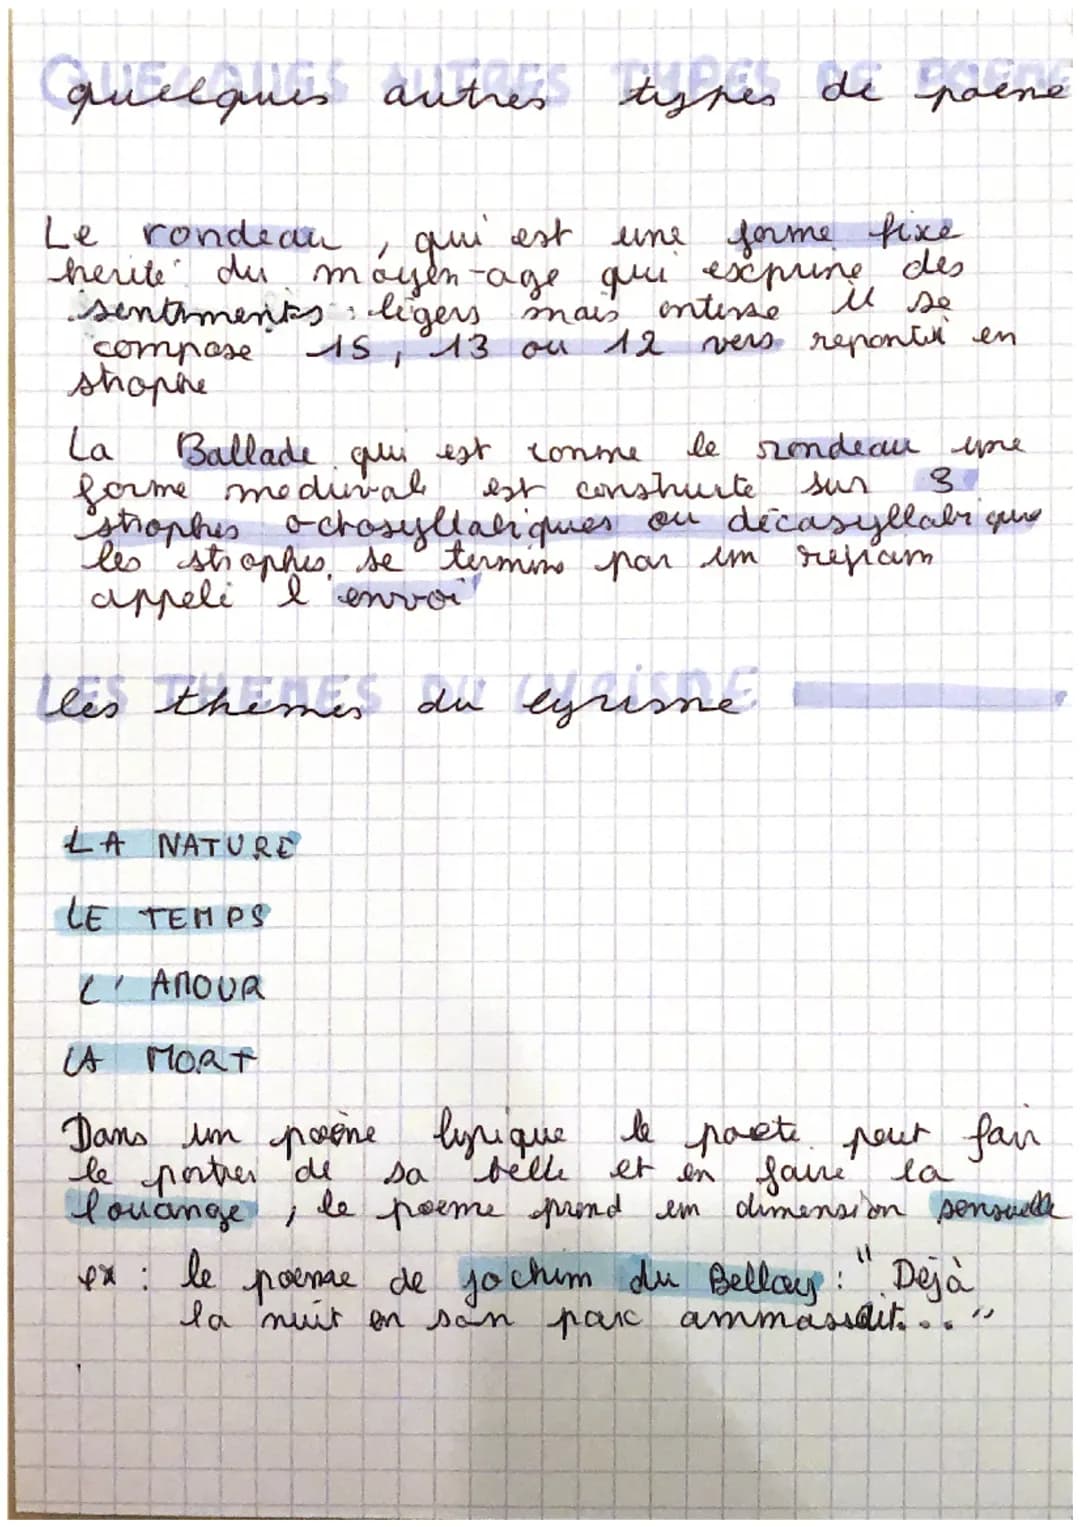 QUELQUES AUTRES TYPES DE POEME
quelques autres types de poème
Le rondeau, qui est une forme fixe
hérité du moyen-age qui exprime des
sentiments légers mais intense il se
compose 15, 13 ou 12 vers repartis en
strophe
La Ballade qui est comme le rondeau une
forme medievale est construite sur 3
strophes octosyllabiques ou décasyllabique
les strophes se termine par un refrain
appelé l'envoi
LES THEMES DU LYRISME
les thèmes du lyrisme
LA NATURE
LE TEMPS
L'AMOUR
LA MORT
Dans un poème lyrique le poete peut fair
le portrer de sa belle et en faire la
louange, le poeme prend un dimension sensuelle
ex : le poeme de jochim du Bellay : "Déjà
la nuit en son parc ammassait..."